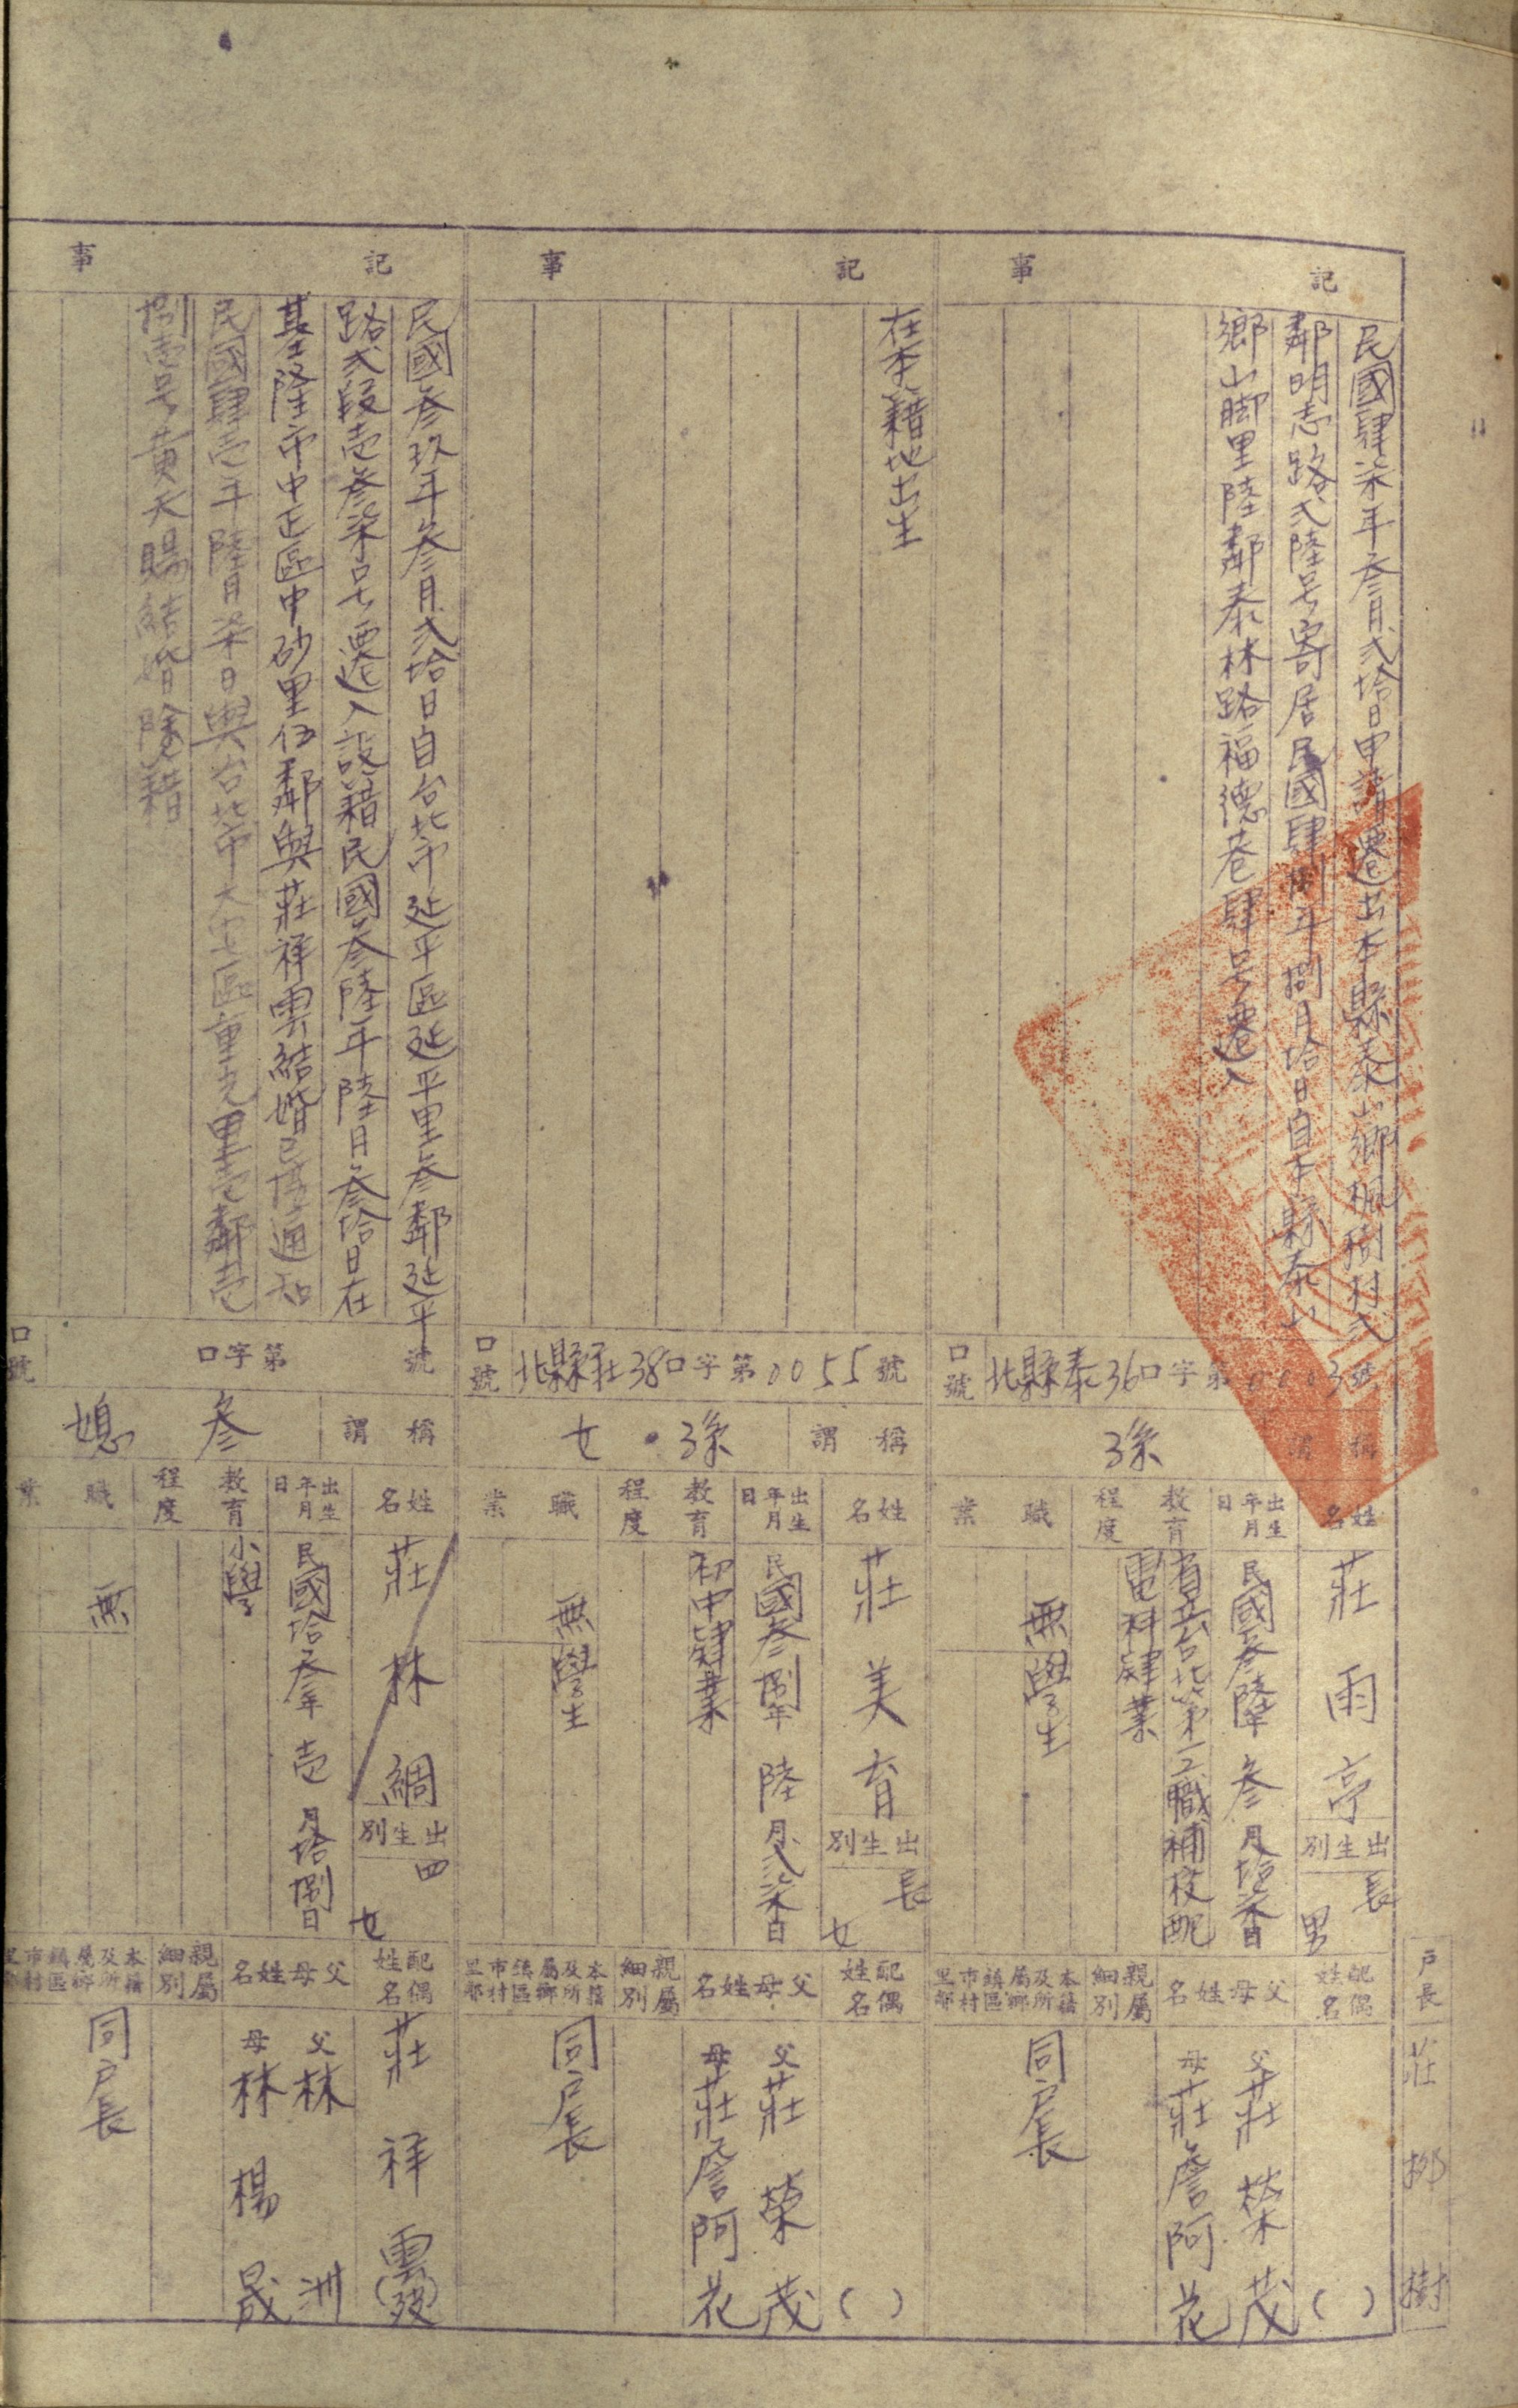 戶長
莊
樹
記事
民國肆柒年叁月弍拾日申請遷出本縣泰山鄉楓樹村弍
鄰明志路弍陸号寄居民國肆捌年捌月拾日自本縣泰山
鄉山脚里陸鄰泰林路福德巷肆号遷入
口號
北縣泰36口字第0003號
稱謂
孫
姓名
莊雨亭
出生別
長男
出生年月日
民國叁陸年叁月拾柒日
教育程度
省立台北第一工職補校配
電科肄業
職業
無
學生
配偶姓名
( )
父母姓名
父莊榮茂
母莊詹阿花
親屬細別
本籍及所屬鄉鎮區市村里鄰
同戶長
記事
在本籍地出生
口號
北縣莊38口字第0055號
稱謂
孫女
姓名
莊美育
出生別
長女
出生年月日
民國叁捌年陸月弍柒日
教育程度
初中肄業
職業
無
學生
配偶姓名
( )
父母姓名
父莊榮茂
母莊詹阿花
親屬細別
本籍及所屬鄉鎮區市村里鄰
同戶長
記事
民國叁玖年叁月弍拾日自台北市延平區延平里叁鄰延平
路弍段壱叁柒号遷入設籍民國叁陸年陸月叁拾日在
基隆市中正區中砂里伍鄰與莊祥雲結婚已接通知
民國肆壱年陸月柒日與台北市大安區重光里壱鄰壱
捌壱号黄天賜結婚除籍
口號
口字第 號
稱謂
叁媳
姓名
莊林綢
出生別
四女
出生年月日
民國拾叁年壱月拾捌日
教育程度
小學
職業
無
配偶姓名
莊祥雲(歿)
父母姓名
父林洲
母林楊晟
親屬細別
本籍及所屬鄉鎮區市村里鄰
同戶長